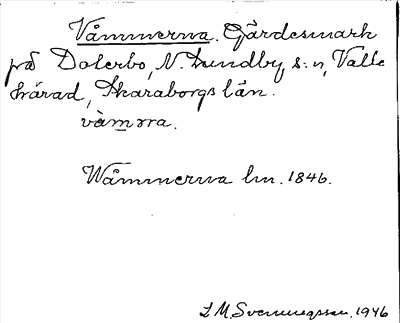 Våmmerna. Gärdesmark
på Dalerbo, N. Lundby s:n, Valle
härad, Skaraborgs län.
vàm̲ɔrna.
Wåmmerna lm. 1846.
L M. Svenungsson. 1946